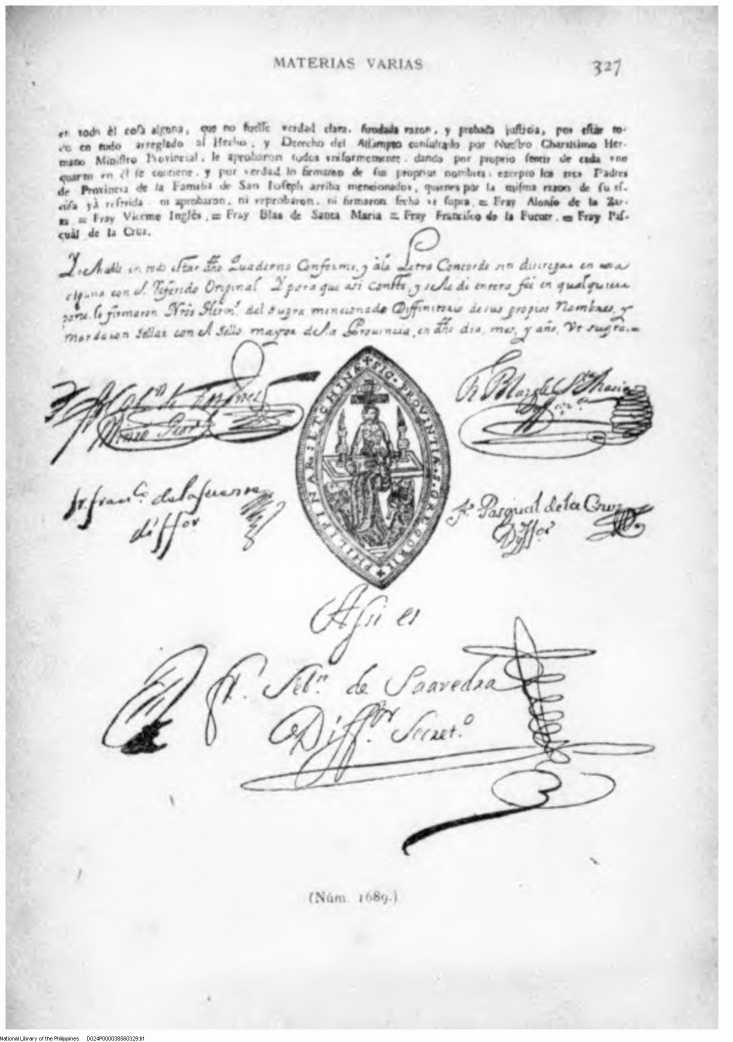 MATERIAS VARIAS
327
en todo èl cosa alguna, que no fuesse verdad clara, fundada razon, y probada justicia, por estàr to-
do en todo arreglado al Hecho, y Derecho del Assumpto consultado por Nuestro Charissimo Her-
mano Ministro Provincial, le aprobaron todos uniformemente, dando por proprio sentir de cada uno
quanto en èl se contiene, y por verdad lo firmaron de sus proprios nombres, excepto los tres Padres
de Provincia de la Familia de San Joseph arriba mencionados, quienes por la misma razon de su es-
cusa yà referida, ni aprobaron, ni reprobaron, ni firmaron fecho ut supra, = Fray Alonso de la Zar-
za = Fray Vicente Inglès, = Fray Blas de Santa Maria = Fray Francisco de la Fuente, = Fray Pas-
quàl de la Cruz.
en todo estar dho Quaderno Conforme, y à la Letra Concorde sin discrepar en cosa
alguna con el Referido Original Y para que asi conste, y se le dè entera fee en qualquiera
parte, lo firmaron Nros Herm.s del supra mencionado Diffinitorio de sus propios Nombres, y
mandaron sellar con el Sello mayor de la Provincia, en dho dia, mes, y año, Vt supra. =
Fr. Blas de Sta Maria
Diffor
SIG. PROVINTIA. S. GREGORII. PHILIPINAR. ILT CHINA
Fr. Fran.co de la fuente
diffor
Fr. Pasqual de la Cruz
Diffor
Assi es
Fr. Seb.n de Saavedra
Diff.or Secret.o
(Núm. 1689.)
National Library of the Philippines